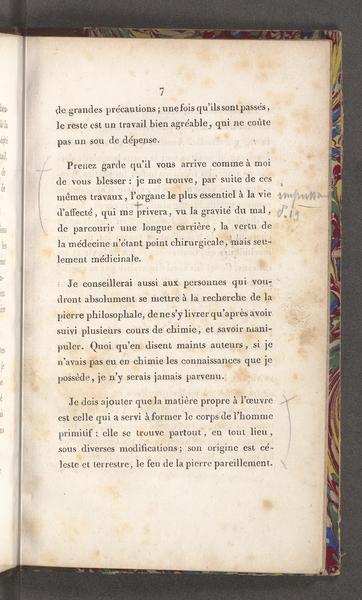 7
de grandes précautions ; une fois qu'ils sont passés,
le reste est un travail bien agréable, qui ne coûte
pas un sou de dépense.
Prenez garde qu'il vous arrive comme à moi
de vous blesser : je me trouve, par suite de ces
mêmes travaux, l'organe le plus essentiel à la vie
d'affecté, qui me privera, vu la gravité du mal,
de parcourir une longue carrière, la vertu de
la médecine n'étant point chirurgicale, mais seu-
lement médicinale.
Je conseillerai aussi aux personnes qui vou-
dront absolument se mettre à la recherche de la
pierre philosophale, de ne s'y livrer qu'après avoir
suivi plusieurs cours de chimie, et savoir mani-
puler. Quoi qu'en disent maints auteurs, si je
n'avais pas eu en chimie les connaissances que je
possède, je n'y serais jamais parvenu.
Je dois ajouter que la matière propre à l'œuvre
est celle qui a servi à former le corps de l'homme
primitif : elle se trouve partout, en tout lieu,
sous diverses modifications ; son origine est cé-
leste et terrestre, le feu de la pierre pareillement.